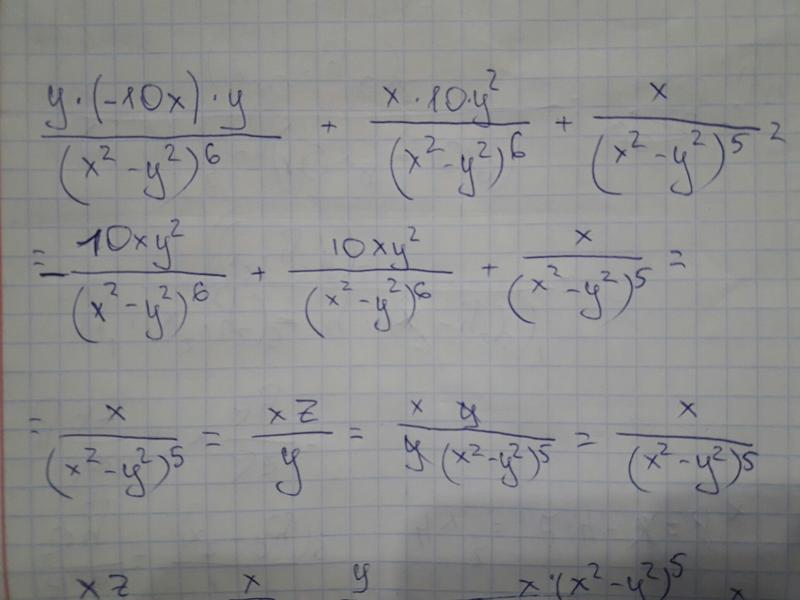 y·(-10x)·y/(x²-y²)⁶ + x·10·y²/(x²-y²)⁶ + x/(x²-y²)⁵ =
= -10xy²/(x²-y²)⁶ + 10xy²/(x²-y²)⁶ + x/(x²-y²)⁵ =
= x/(x²-y²)⁵ = xz/y = x y/y(x²-y²)⁵ = x/(x²-y²)⁵
xz x y x·(x²-y²)⁵ x